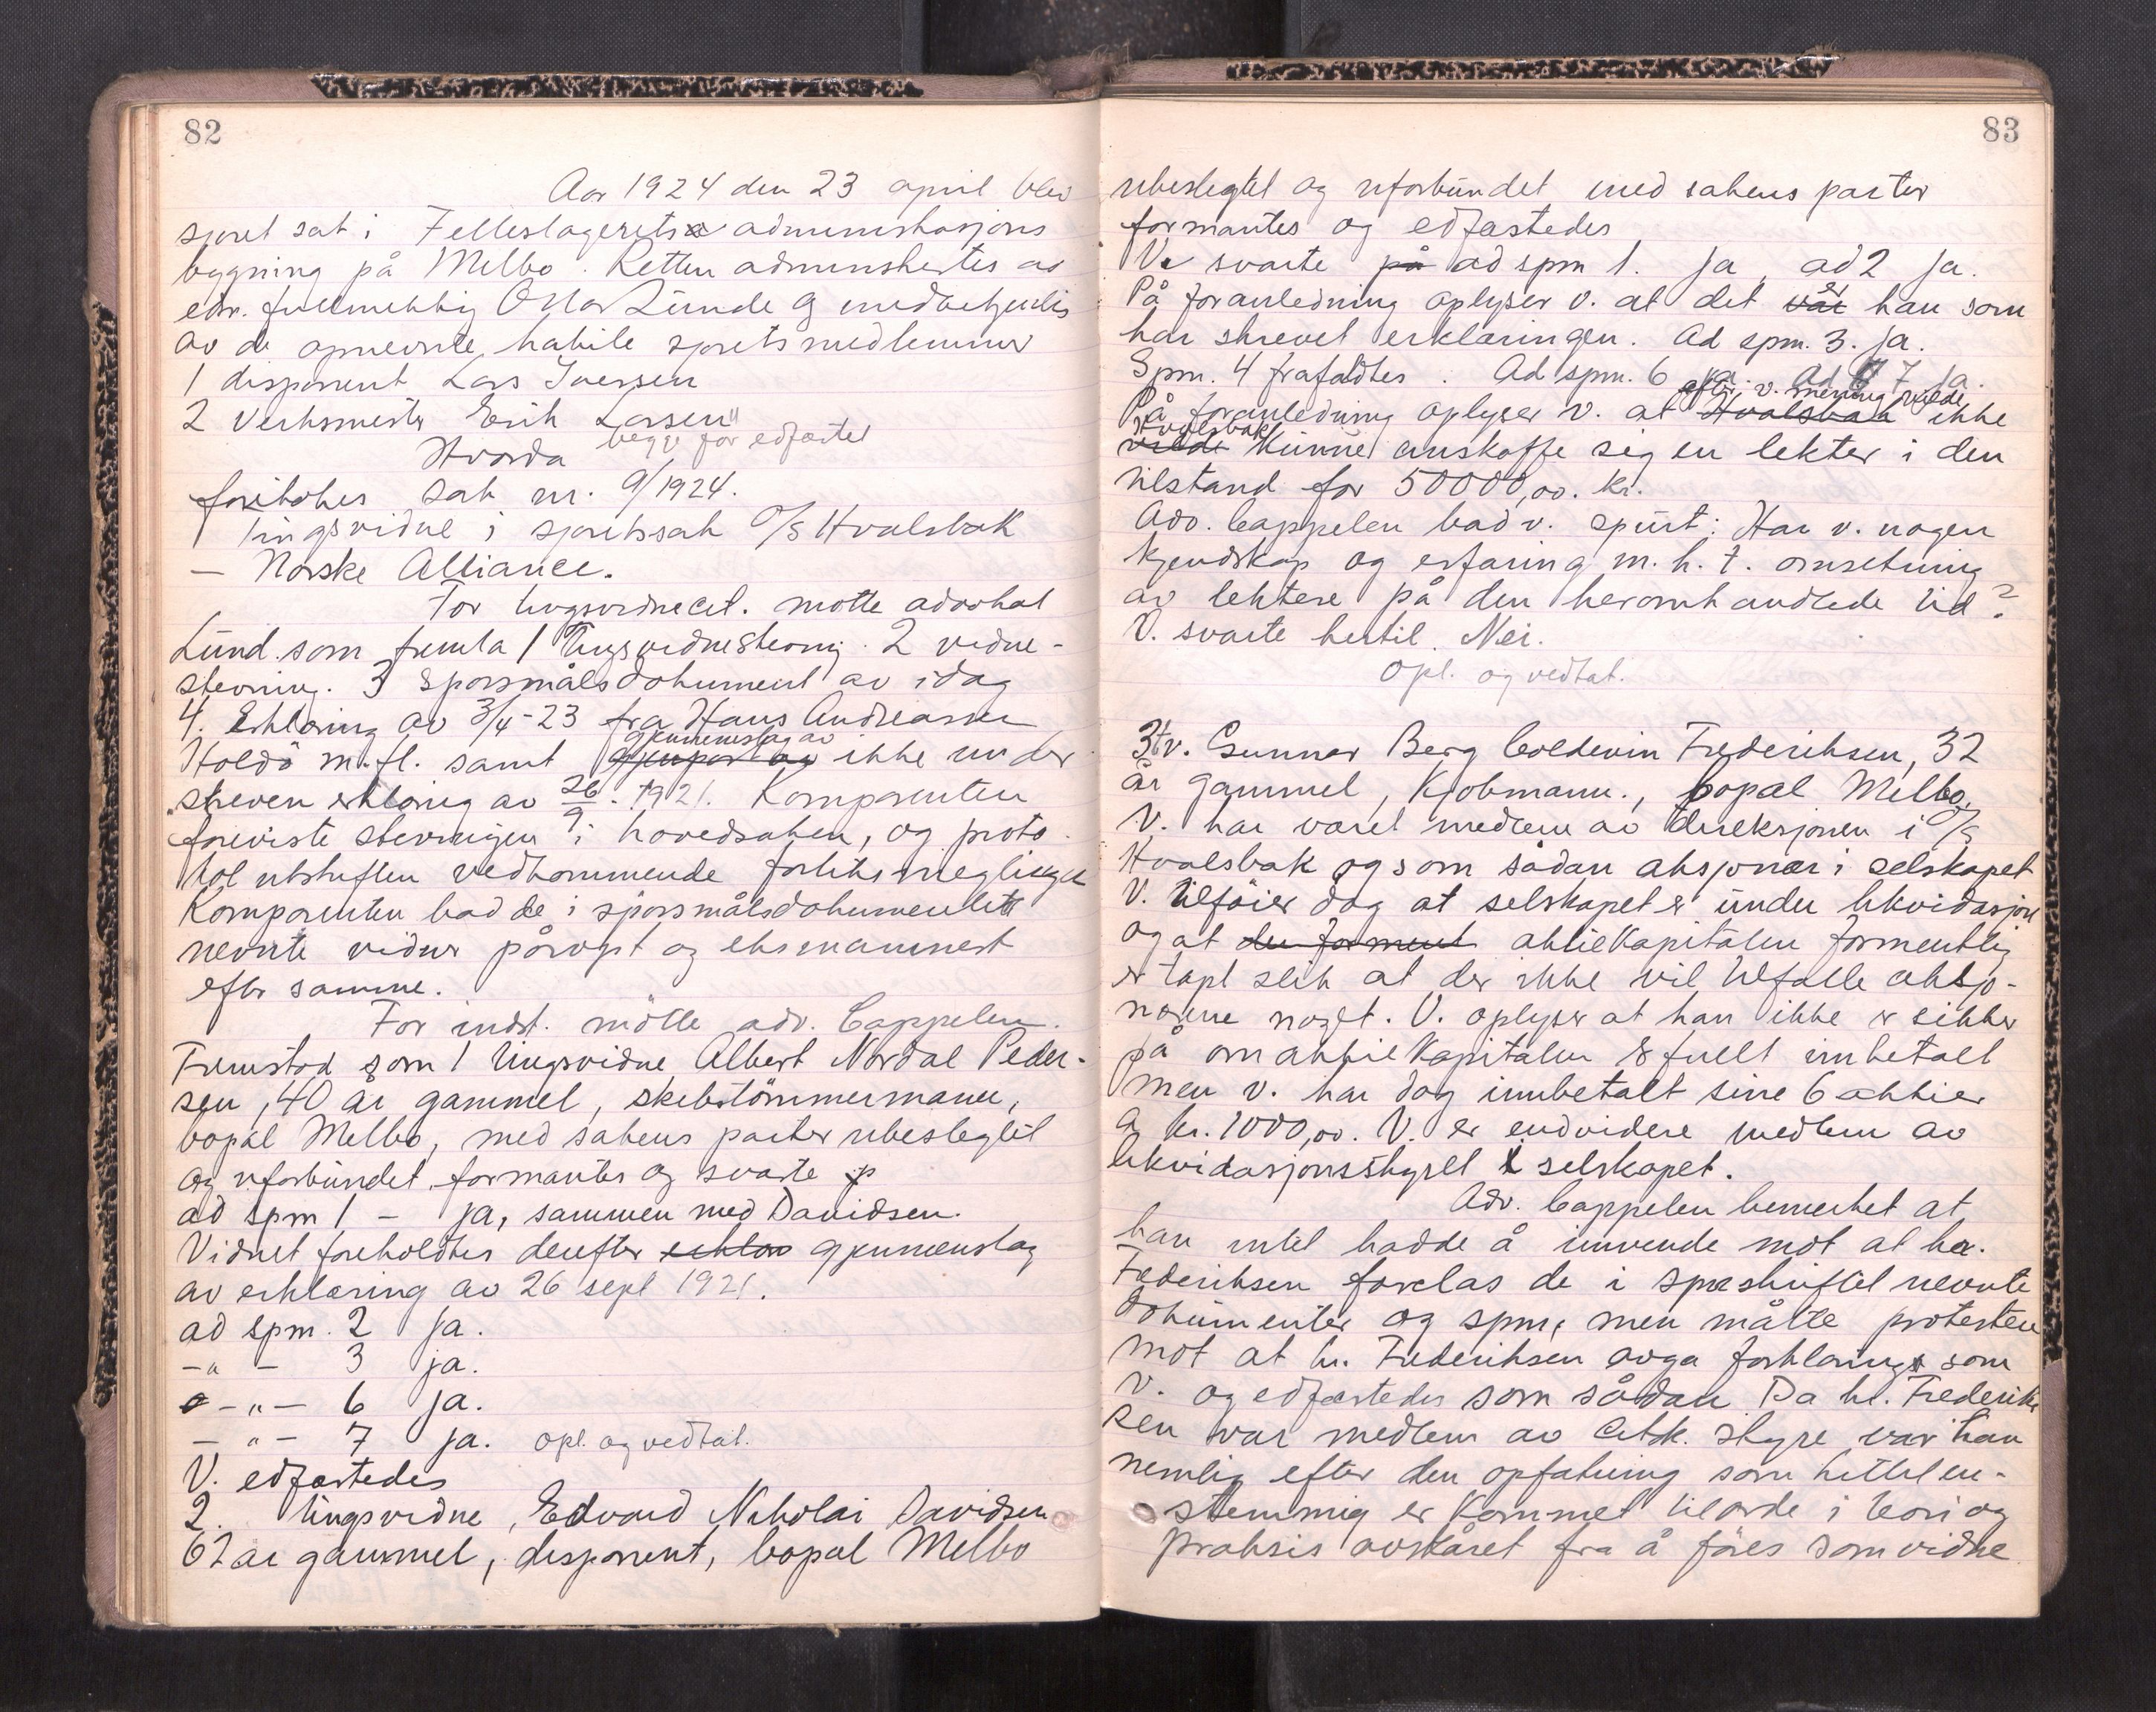 82
Aar 1924 den 23 april blev
sjøret sat i Felleslagerets administrasjons
bygning på Melbo. Retten administrertes av
edsv. fullmektig Olla Lunde og medbetjentes
av de opnevnte, habile sjøretsmedlemmer
1 disponent Lars Iversen
2 Verksmester Erik Larsen
begge før edfæstet
Hvorda
foretokes sak nr. 9/1924.
Tingsvidne i sjøretssak O/S Hvalsbak
- Norske Alliance.
For tingsvidnecit. møtte advokat
Lund som fremla 1 Tingsvidnestevning. 2 vidne-
stevning. 3 Spørsmålsdokument av idag
4. Erklæring av 3/4-23 fra Hans Andreassen
gjennemslag av
Holdø m. fl. samt gjenpart av ikke under
skreven erklæring av 26/9. 1921. Komparenten
foreviste stevningen i hovedsaken, og proto-
kol utskriften vedkommende forliksmeglingen
Komparenten bad de i spørsmålsdokumentet
nevnte vidner påropt og eksamineret
efter samme.
For indst. møtte adv. Cappelen.
Fremstod som 1 tingsvidne Albert Nordal Peder-
sen, 40 år gammel, skibstömmermann,
bopal Melbo, med sakens parter ubeslegtet
og uforbundet, formantes og svarte p
ad spm 1 - ja, sammen med Davidsen.
Vidnet foreholdtes derefter erklær gjennemslag
av erklæring av 26 sept 1921.
ad spm. 2 ja.
-"- 3 ja.
-"- 6 ja.
-"- 7 ja. opl. og vedtat.
V. edfæstedes
2. tingsvidne, Edvard Nikolai Davidsen
62 år gammel, disponent, bopal Melbo
83
ubeslegtet og uforbundet med sakens parter
formantes og edfæstedes
V. svarte på ad spm 1. ja, ad 2 ja.
er
På foranledning oplyser v. at det var han som
har skrevet erklæringen. Ad spm. 3. ja.
Spm. 4 frafaldtes. Ad spm. 6 ja. Ad 7 ja.
efter v. mening vilde
På foranledning oplyser v. at Hvalsbak ikke
Hvalsbak
vilde kunne anskaffe sig en lekter i den
tilstand for 50000,00. kr.
Adv. Cappelen bad v. spurt: Har v. nogen
kjendskap og erfaring m. h. t. omsetning
av lektere på den heromhandlede tid?
V. svarte hertil. Nei.
opl. og vedtat.
3 tv. Gunnar Berg Coldevin Frederiksen, 32
år gammel, Kjøbmann., bopal Melbo.
V. har været medlem av direksjonen i O/S
Hvalsbak og som sådan aksjonær i selskapet
V. tilføier dog at selskapet er under likvidasjon
og at den forment aktiekapitalen formentlig
er tapt slik at der ikke vil tilfalle aksjo-
nærene noget. V. oplyser at han ikke er sikker
på om aktiekapitalen er fullt innbetalt
men v. har dog innbetalt sine 6 aktier
a kr. 1000,00. V. er endvidere medlem av
likvidasjonsstyret i selskapet.
Adv. Cappelen bemerket at
han intet hadde å innvende mot at hr.
Frederiksen forelas de i spørskriftet nevnte
dokumenter og spm, men måtte protestere
mot at hr. Frederiksen avga forklaring som
v. og edfæstedes som sådan Da hr. Frederik
sen var medlem av citsk. styre var han
nemlig efter den opfatning som hittil en-
stemmig er kommet tilorde i teori og
praksis avskåret fra å føres som vidne